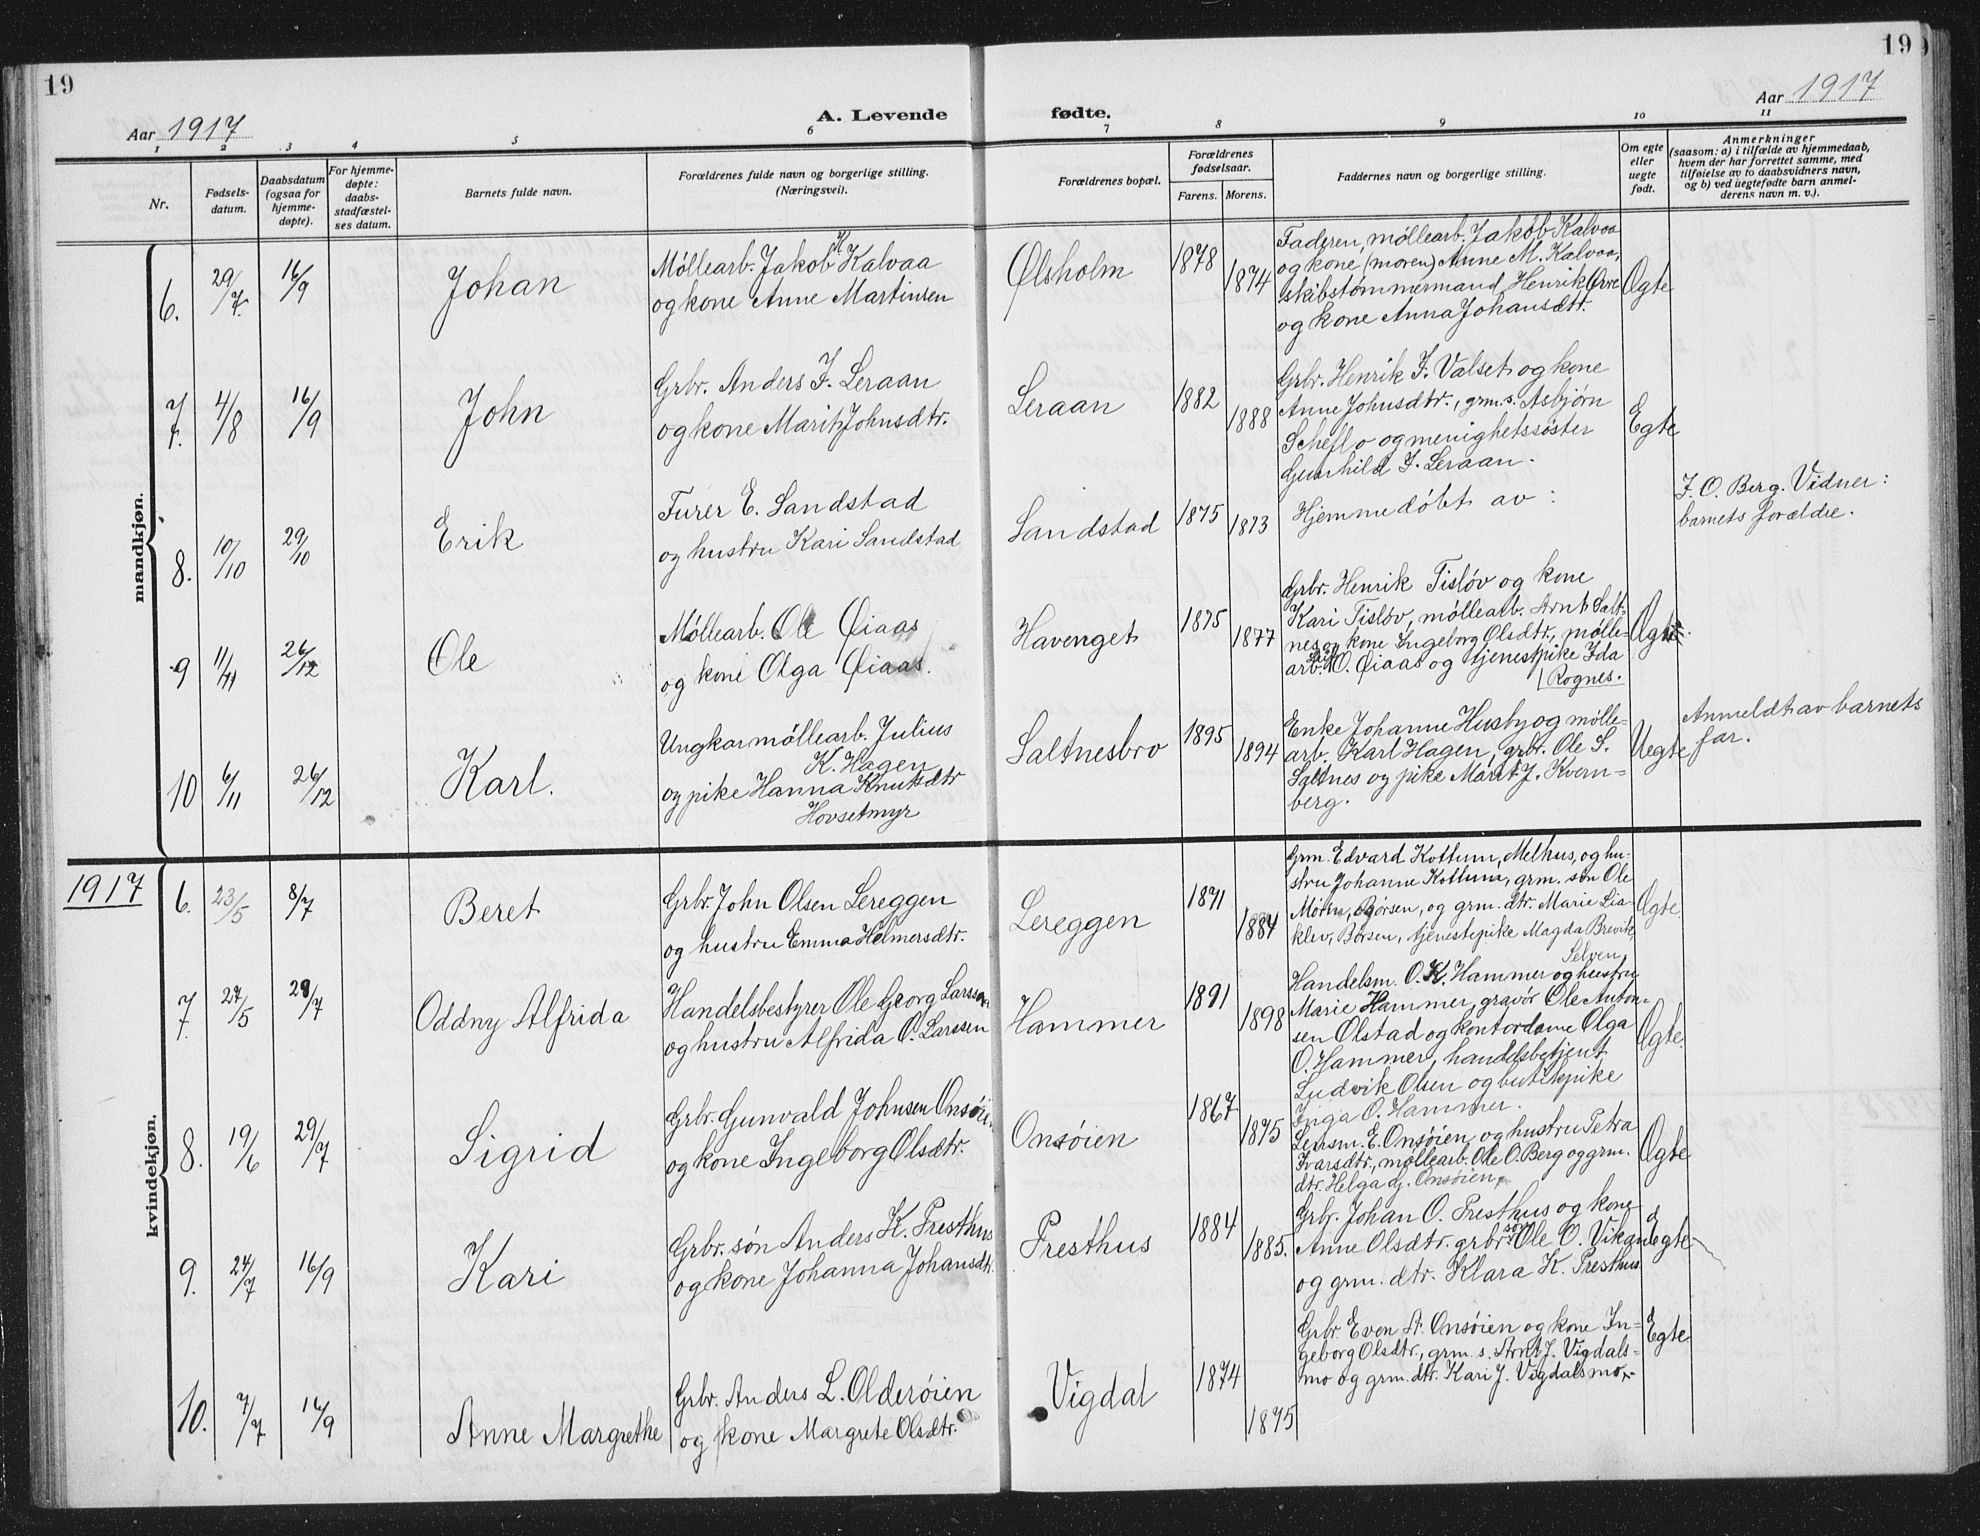 19
19
Aar 1917
A. Levende fødte.
Aar 1917
1 2 3 4 5 6 7 8 9 10 11
Nr.
Fødsels-
datum.
Daabsdatum
(ogsaa for
hjemme-
døpte).
For hjemme-
døpte:
daabs-
stadfæstel-
ses datum.
Barnets fulde navn.
Forældrenes fulde navn og borgerlige stilling.
(Næringsvei).
Forældrenes bopæl.
Forældrenes
fødselsaar.
Farens. Morens.
Faddernes navn og borgerlige stilling.
Om egte
eller
uegte
født.
Anmerkninger
(saasom: a) i tilfælde av hjemmedaab,
hvem der har forrettet samme, med
tilføielse av to daabsvidners navn,
og b) ved uegtefødte barn anmel-
derens navn m. v.).
mandkjøn.
6. 29/7. 16/9 Johan
Møllearb. Jakob K Kalvaa
og kone Anne Martinsen
Ølsholm 1878 1874
Faderen, møllearb. Jakob Kalvaa
og kone (moren) Anne M. Kalvaa,
skibstømmermand Henrik
og kone Anna Johansdtr.
Egte
7. 4/8 16/9 John
Grbr. Anders J. Leraan
og kone Marit Johnsdtr.
Leraan 1882 1888
Grbr. Henrik J. Valset og kone
Anne Johnsdtr., grm. s. Asbjørn
Scheflo og menighetssøster
Gunhild J. Leraan.
Egte
8. 10/10 29/10 Erik
Furer E. Sandstad
og hustru Kari Sandstad
Sandstad 1875 1873
Hjemmedøbt av:
J. O. Berg. Vidner:
barnets forældre.
9 11/11 26/12 Ole
Møllearb. Ole Øiaas
og kone Olga Øiaas.
Havenget 1875 1877
Grbr. Henrik Tisløv og kone
Kari Tisløv, møllearb. Arnt Salt-
nes og kone Ingeborg Olsdtr., mølle-
arb. O. Øiaas og tjenestpike Ida
Rognes.
Egte.
10 6/11 26/12 Karl.
Ungkar møllearb. Julius
K. Hagen
og pike Hanna Knutsdtr
Hovsetmyr
Saltnesbro 1895 1894
Enke Johanne Husby og mølle-
arb. Karl Hagen, grbr. Ole S.
Saltnes og pike Marit J. Kvern-
berg.
Uegte
Anmeldt av barnets
far.
1917
kvindekjøn.
6. 23/5 8/7 Beret
Grbr. John Olsen Lereggen
og hustru Emma Helmersdtr.
Lereggen 1871 1884
Grm. Edvard Kottum, Melhus, og hu-
stru Johanne Kottum, grm. søn Ole
Børsen, og grm. dtr. Marie Lia-
klev, Børsen, tjenestepike Magda Brevik,
Selven
Egte.
7. 27/5 29/7 Oddny Alfrida
Handelsbestyrer Ole Georg Larssen
og hustru Alfrida O. Larssen
Hammer 1891 1898
Handelsm. O. K. Hammer og hustru
Marie Hammer, gravør Ole Anton-
sen Olstad og kontordame Olga
O. Hammer, handelsbetjent
Ludvik Olsen og butikpike
Inga O. Hammer.
Egte.
8. 19/6 29/7 Sigrid
Grbr. Gunvald Johnsen Onsøien
og kone Ingeborg Olsdtr.
Onsøien 1867 1875
Lensm. E. Onsøien og hustru Petra
Ivarsdtr., møllearb. Ole O. Berg og grm.
dtr. Helga G. Onsøien,
Egte
9. 24/7 16/9 Kari
Grbr. søn Anders K. Presthus
og kone Johanna Johansdtr.
Presthus 1884 1885.
Grbr. Johan O. Presthus og kone
Anne Olsdtr. grbr. søn Ole O. Vikan
og grm. dtr. Klara K. Presthus
Egte
10. 7/7 16/9 Anne Margrethe
Grbr. Anders L. Olderøien
og kone Margrete Olsdtr.
Vigdal 1874 1875
Grbr. Even A. Onsøien og kone In-
geborg Olsdtr., grm. s. Arnt J. Vigdals-
mo og grm. dtr. Kari J. Vigdalsmo.
Egte